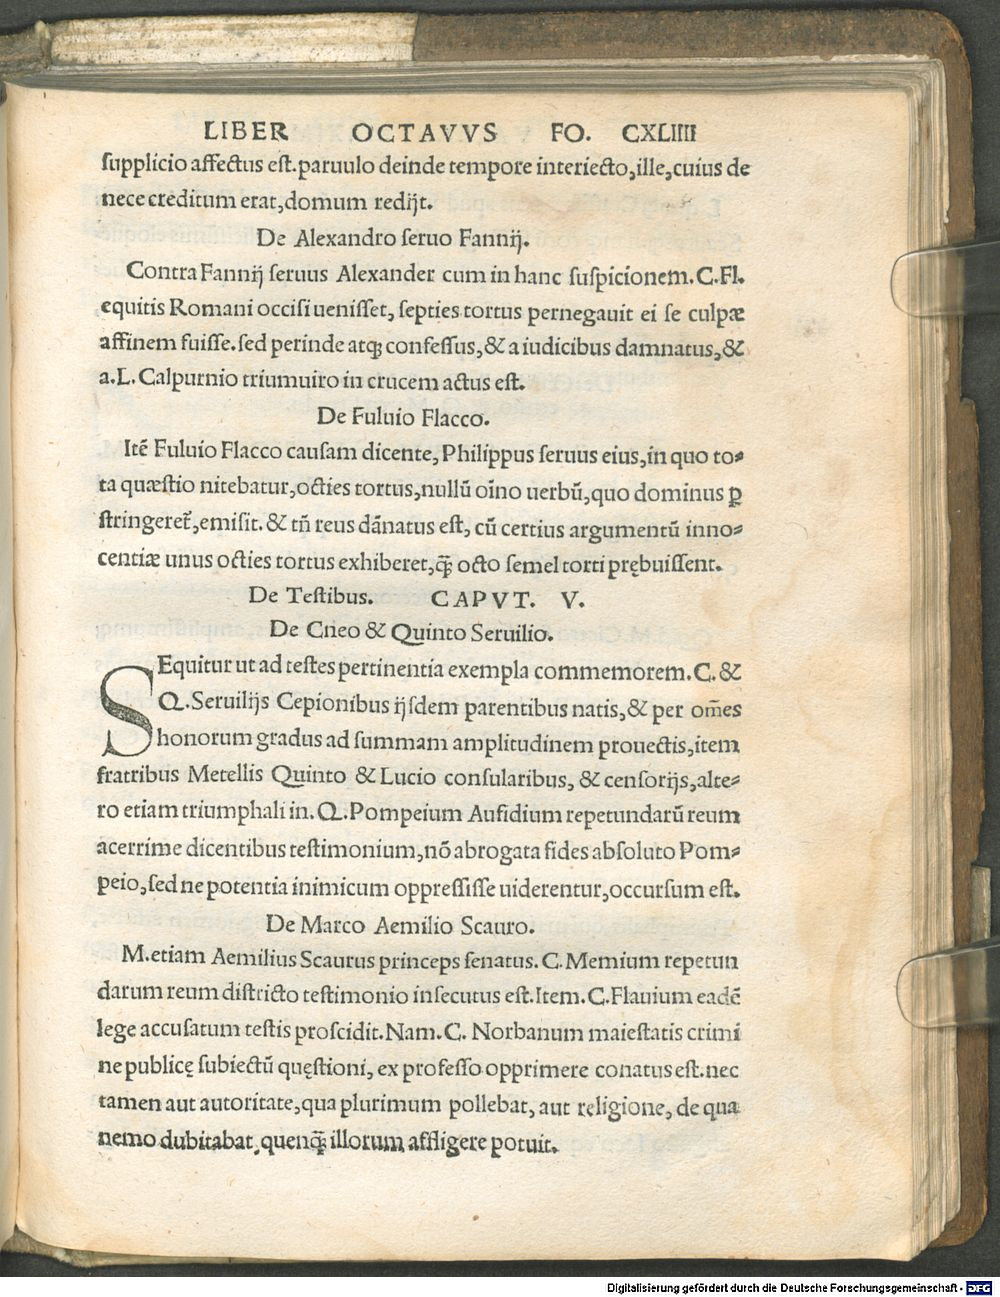 LIBER OCTAVVS FO. CXLIIII
supplicio affectus est. paruulo deinde tempore interiecto, ille, cuius de
nece creditum erat, domum redijt.
De Alexandro seruo Fannij.
Contra Fannij seruus Alexander cum in hanc suspicionem. C. Fl.
equitis Romani occisi uenisset, septies tortus pernegauit ei se culpæ
affinem fuisse. sed perinde atqꝫ confessus, & a iudicibus damnatus, &
a. L. Calpurnio triumuiro in crucem actus est.
De Fuluio Flacco.
Itẽ Fuluio Flacco causam dicente, Philippus seruus eius, in quo to-
ta quæstio nitebatur, octies tortus, nullũ oĩno uerbũ, quo dominus ꝑ
stringeret̃, emisit. & tñ reus dãnatus est, cũ certius argumentũ inno-
centiæ unus octies tortus exhiberet, q̃ꝫ octo semel torti prębuissent.
De Testibus. CAPVT. V.
De Cneo & Quinto Seruilio.
SEquitur ut ad testes pertinentia exempla commemorem. C. &
Q. Seruilijs Cepionibus ijsdem parentibus natis, & per om̃es
honorum gradus ad summam amplitudinem prouectis, item
fratribus Metellis Quinto & Lucio consularibus, & censorijs, alte-
ro etiam triumphali in. Q. Pompeium Aufidium repetundarũ reum
acerrime dicentibus testimonium, nõ abrogata fides absoluto Pom-
peio, sed ne potentia inimicum oppressisse uiderentur, occursum est.
De Marco Aemilio Scauro.
M. etiam Aemilius Scaurus princeps senatus. C. Memium repetun
darum reum districto testimonio insecutus est. Item. C. Flauium eadẽ
lege accusatum testis proscidit. Nam. C. Norbanum maiestatis crimi
ne publicę subiectũ quęstioni, ex professo opprimere conatus est. nec
tamen aut autoritate, qua plurimum pollebat, aut religione, de qua
nemo dubitabat, quenq̃ꝫ illorum affligere potuit.
Digitalisierung gefördert durch die Deutsche Forschungsgemeinschaft - DFG